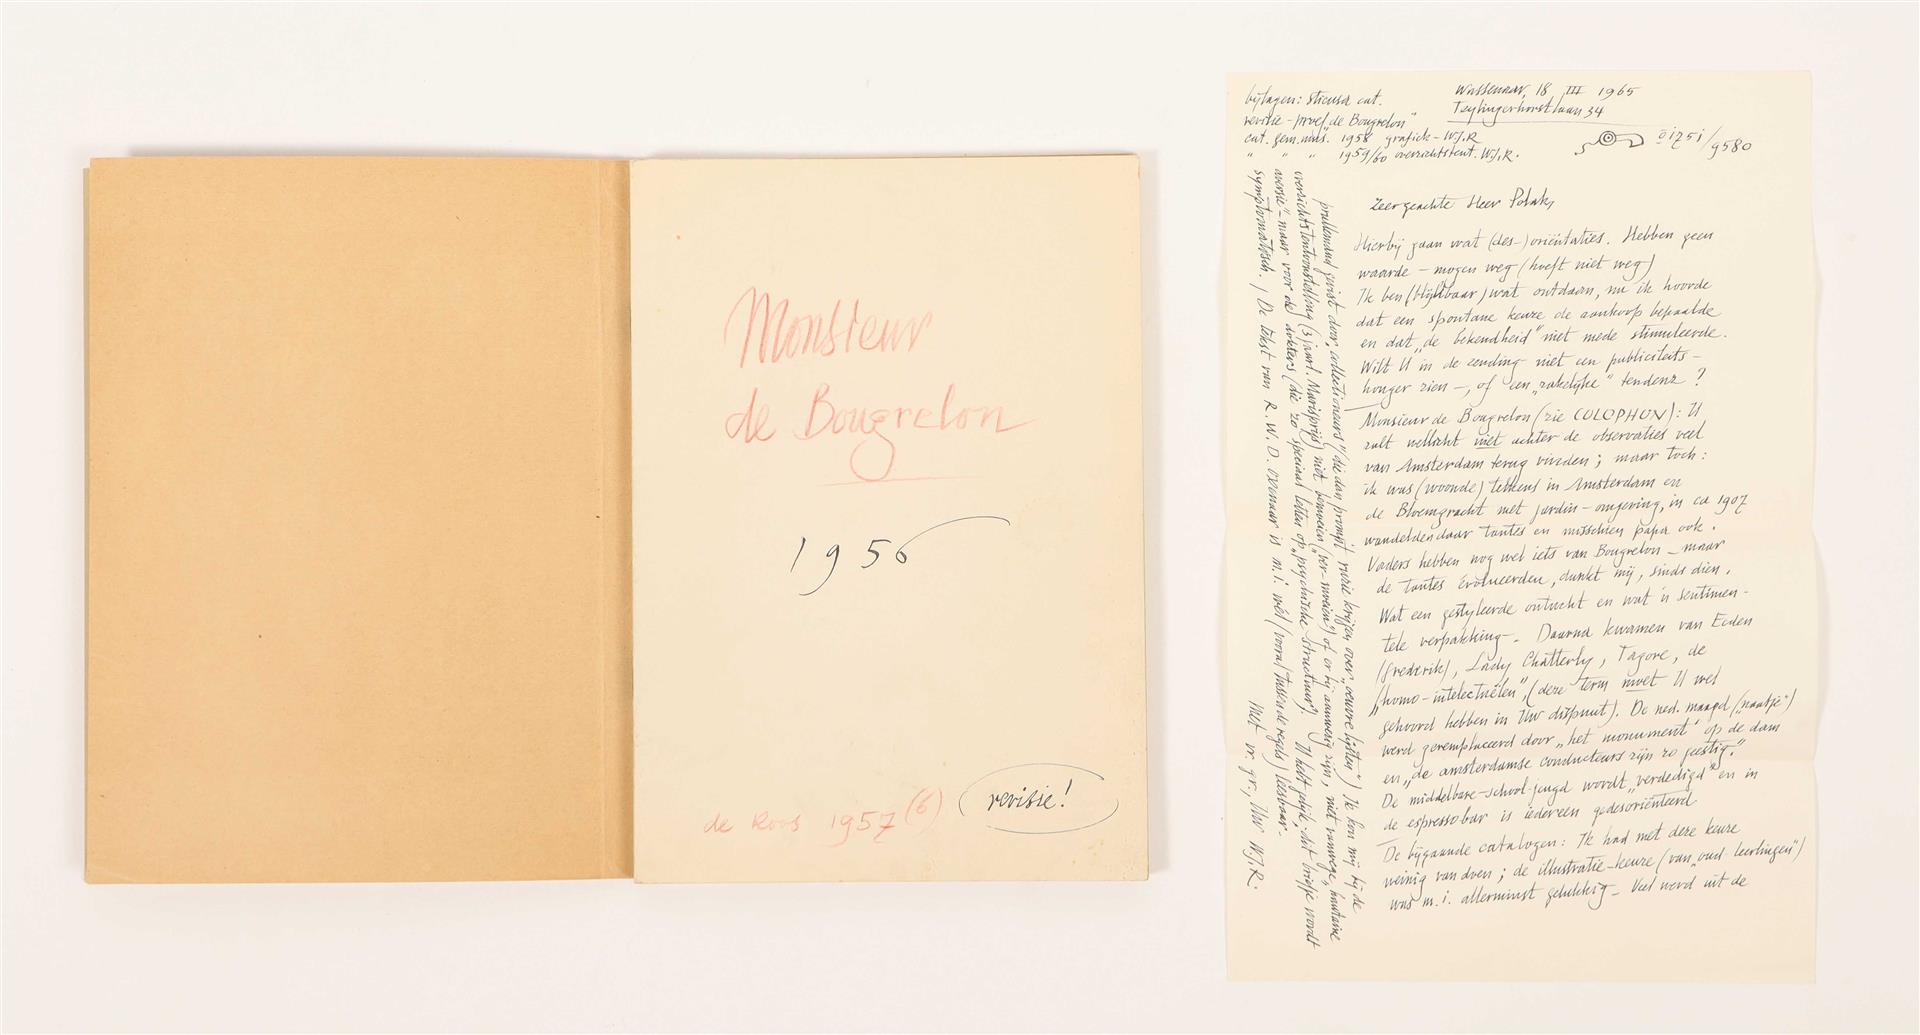 Monsieur
de Bougrelon
1956
de Roos 1957 (6)
revisie!
bijlagen: stieusa cat.
revisie-proef „de Bougrelon"
cat. gem. mus. 1958 grafiek - WJR
" " " 1959/60 overzichtstent. W.J.R.
Wassenaar, 18 III 1965
Teylingerhorstlaan 34
01751/9580
Zeergeachte Heer Polak,
Hierbij gaan wat (des-)oriëntaties. Hebben geen
waarde – mogen weg (hoeft niet weg)
Ik ben (blijkbaar) wat ontdaan, nu ik hoorde
dat een spontane keuze de aankoop bepaalde
en dat „de bekendheid" niet mede stimuleerde.
Wilt U in de zending niet een publiciteits-
honger zien –, of een „zakelijke" tendenz?
Monsieur de Bougrelon (zie COLOPHON): U
zult wellicht niet achter de observaties veel
van Amsterdam terug vinden; maar toch:
ik was (woonde) telkens in Amsterdam en
de Bloemgracht met jardin-omgeving, in ca 1907
wandelden daar tantes en misschien papa ook.
Vaders hebben nog wel iets van Bougrelon – maar
de tantes évolueerden, dunkt mij, sinds dien.
Wat een gestyleerde ontucht en wat 'n sentimen-
tele verpakking –. Daarna kwamen van Eeden
(frederik), Lady Chatterly, Tagore, de
„homo-intelectuëlen", (deze term moet U wel
gehoord hebben in Uw dispuut). De ned. maagd („naatje")
werd geremplaceerd door „het monument" op de dam
en „de amsterdamse conducteurs zijn zo geestig."
De middelbare-school-jeugd wordt „verdedigd" en in
de espressobar is iedereen gedesoriënteerd
De bijgaande catalogen: Ik had met deze keuze
weinig van doen; de illustratie-keuze (van „oud-leerlingen")
was m.i. allerminst gelukkig – Veel werd uit de
prullemand gevist door „collectioneurs" (die dan prompt ruzie krijgen over „oeuvre lijsten") Ik kon mij bij de
overzichtstentoonstelling (3 jaarl. Marisprijs) niet bemoeien („ber-moeien") of er bij aanwezig zijn, niet vanwege „hautaine
aversie" – maar voor de dokters (die zo speciaal letten op „psychische structuur"). U hebt gelijk, dit briefje wordt
symptomatisch. / De tekst van R.W.D. Oxenaar is m.i. wél (vooral tussen de regels) leesbaar.
Met vr. gr., Uw W.J.R.